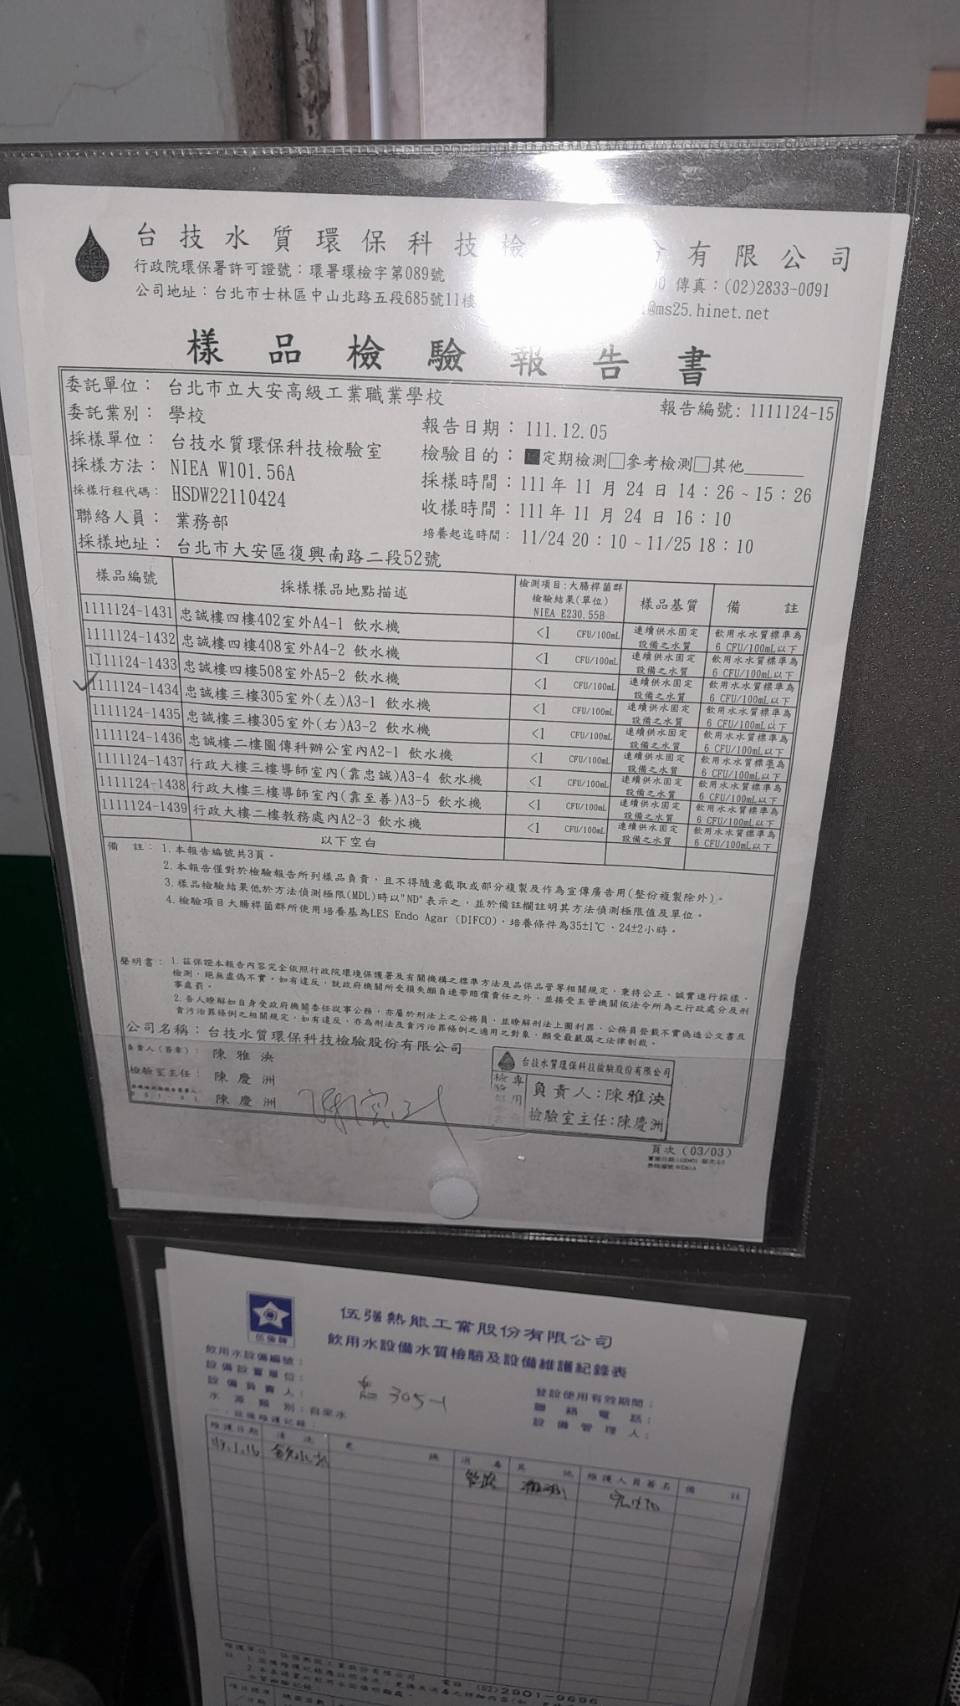 台技水質環保科技檢 份有限公司
行政院環保署許可證號：環署環檢字第089號 傳真：(02)2833-0091
公司地址：台北市士林區中山北路五段685號11樓 @ms25.hinet.net
樣品檢驗報告書
委託單位：台北市立大安高級工業職業學校 報告編號：1111124-15
委託業別：學校 報告日期：111.12.05
採樣單位：台技水質環保科技檢驗室 檢驗目的：■定期檢測□參考檢測□其他
採樣方法：NIEA W101.56A 採樣時間：111年11月24日14：26~15：26
採樣行程代碼：HSDW22110424 收樣時間：111年11月24日16：10
聯絡人員：業務部 培養起迄時間：11/24 20：10~11/25 18：10
採樣地址：台北市大安區復興南路二段52號
樣品編號 採樣樣品地點描述 檢測項目:大腸桿菌群 檢驗結果(單位) NIEA E230.55B 樣品基質 備註
1111124-1431 忠誠樓四樓402室外A4-1 飲水機 <1 CFU/100mL 連續供水固定設備之水質 飲用水水質標準為6 CFU/100mL以下
1111124-1432 忠誠樓四樓408室外A4-2 飲水機 <1 CFU/100mL 連續供水固定設備之水質 飲用水水質標準為6 CFU/100mL以下
1111124-1433 忠誠樓四樓508室外A5-2 飲水機 <1 CFU/100mL 連續供水固定設備之水質 飲用水水質標準為6 CFU/100mL以下
1111124-1434 忠誠樓三樓305室外(左)A3-1 飲水機 <1 CFU/100mL 連續供水固定設備之水質 飲用水水質標準為6 CFU/100mL以下
1111124-1435 忠誠樓三樓305室外(右)A3-2 飲水機 <1 CFU/100mL 連續供水固定設備之水質 飲用水水質標準為6 CFU/100mL以下
1111124-1436 忠誠樓二樓圖傳科辦公室內A2-1 飲水機 <1 CFU/100mL 連續供水固定設備之水質 飲用水水質標準為6 CFU/100mL以下
1111124-1437 行政大樓三樓導師室內(靠忠誠)A3-4 飲水機 <1 CFU/100mL 連續供水固定設備之水質 飲用水水質標準為6 CFU/100mL以下
1111124-1438 行政大樓三樓導師室內(靠至善)A3-5 飲水機 <1 CFU/100mL 連續供水固定設備之水質 飲用水水質標準為6 CFU/100mL以下
1111124-1439 行政大樓二樓教務處內A2-3 飲水機 <1 CFU/100mL 連續供水固定設備之水質 飲用水水質標準為6 CFU/100mL以下
以下空白
備註：1.本報告編號共3頁。
2.本報告僅對於檢驗報告所列樣品負責，且不得隨意截取或部分複製及作為宣傳廣告用(整份複製除外)。
3.樣品檢驗結果低於方法偵測極限(MDL)時以"ND"表示之，並於備註欄註明其方法偵測極限值及單位。
4.檢驗項目大腸桿菌群所使用培養基為LES Endo Agar (DIFCO)，培養條件為35±1℃、24±2小時。
聲明書：1.茲保證本報告內容完全依照行政院環境保護署及有關機構之標準方法及品保品管等相關規定，秉持公正、誠實進行採樣、
檢測，絕無虛偽不實。如有違反，就政府機關所受損失願負連帶賠償責任之外，並接受主管機關依法令所為之行政處分及刑
事處罰。
2.吾人瞭解如自身受政府機關委任從事公務，亦屬於刑法上之公務員，並瞭解刑法上圖利罪、公務員登載不實偽造公文書及
貪污治罪條例之相關規定，如有違反，亦為刑法及貪污治罪條例之適用之對象，願受最嚴厲之法律制裁。
公司名稱：台技水質環保科技檢驗股份有限公司
負責人(簽章)：陳雅泱
檢驗室主任：陳慶洲
陳慶洲
台技水質環保科技檢驗股份有限公司
專用
負責人：陳雅泱
檢驗室主任：陳慶洲
頁次(03/03)
伍強熱能工業股份有限公司
飲用水設備水質檢驗及設備維護紀錄表
飲用水設備編號：
設備設置單位：
設備負責人： 305-1
水源類別：自來水
登設使用有效期間：
聯絡電話：
設備管理人：
維護日期 清洗 更換 消毒 其他 維護人員簽名 備註
(02)2901-9696